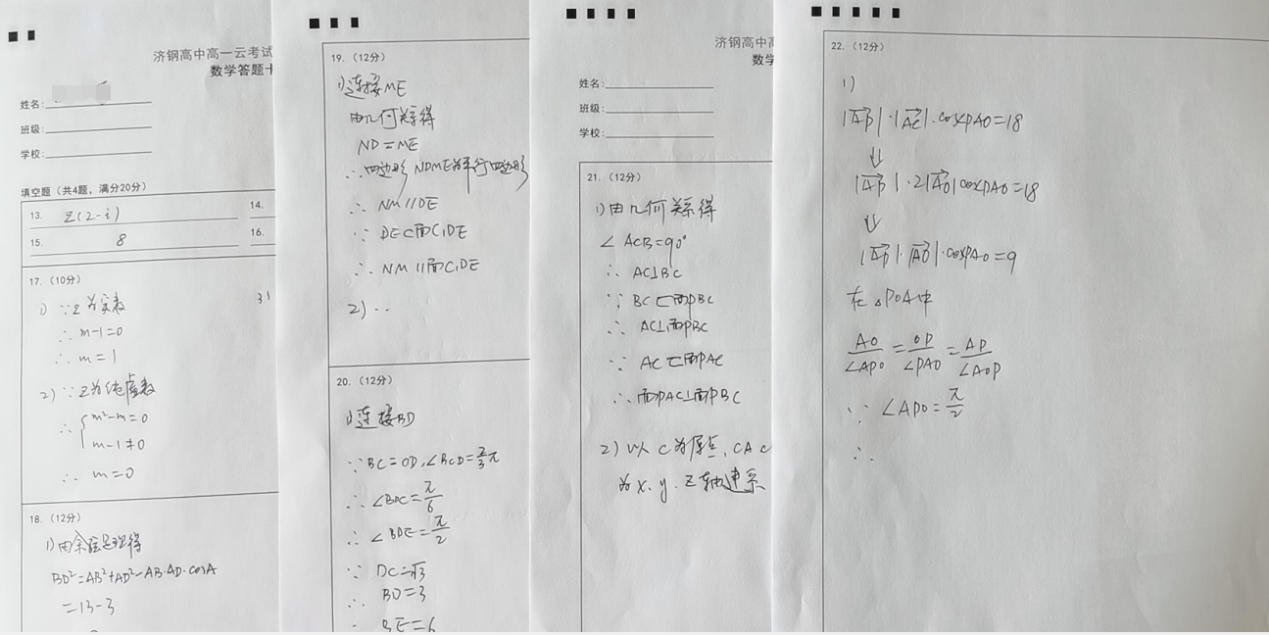 济钢高中高一云考试
数学答题卡
姓名:
班级:
学校:
填空题（共4题，满分20分）
13. Z(2-i)
14.
15. 8
16.
17.（10分）
1) ∵Z为实数
∴ m-1=0
∴ m=1
2) ∵Z为纯虚数
∴ { m²-m=0
m-1≠0
∴ m=0
31
18.（12分）
1)由余弦定理得
BD²=AB²+AD²-AB·AD·cosA
=13-3
19.（12分）
1)连接ME
由几何关系得
ND=ME
∴四边形NDME为平行四边形
∴ NM//DE
∵ DE⊂面C₁DE
∴ NM//面C₁DE
2) ..
20.（12分）
1)连接BD
∵BC=CD,∠BCD=2/3π
∴ ∠BDC=π/6
∴ ∠BDE=π/2
∵ DC=√3
∴ BD=3
BE=6
济钢高中高
数学
姓名:
班级:
学校:
21.（12分）
1)由几何关系得
∠ACB=90°
∴ AC⊥BC
∵ BC⊂面PBC
∴ AC⊥面PBC
∵ AC⊂面PAC
∴ 面PAC⊥面PBC
2) 以C为原点,CA C
为x.y.z轴建系
22.（12分）
1)
|AP|·|AC|·cos∠PAO=18
⇓
|AP|·2|AO|cos∠PAO=18
⇓
|AP|·|AO|·cos∠PAO=9
在△POA中
AO/∠APO=OP/∠PAO=AP/∠AOP
∵ ∠APO=π/2
∴